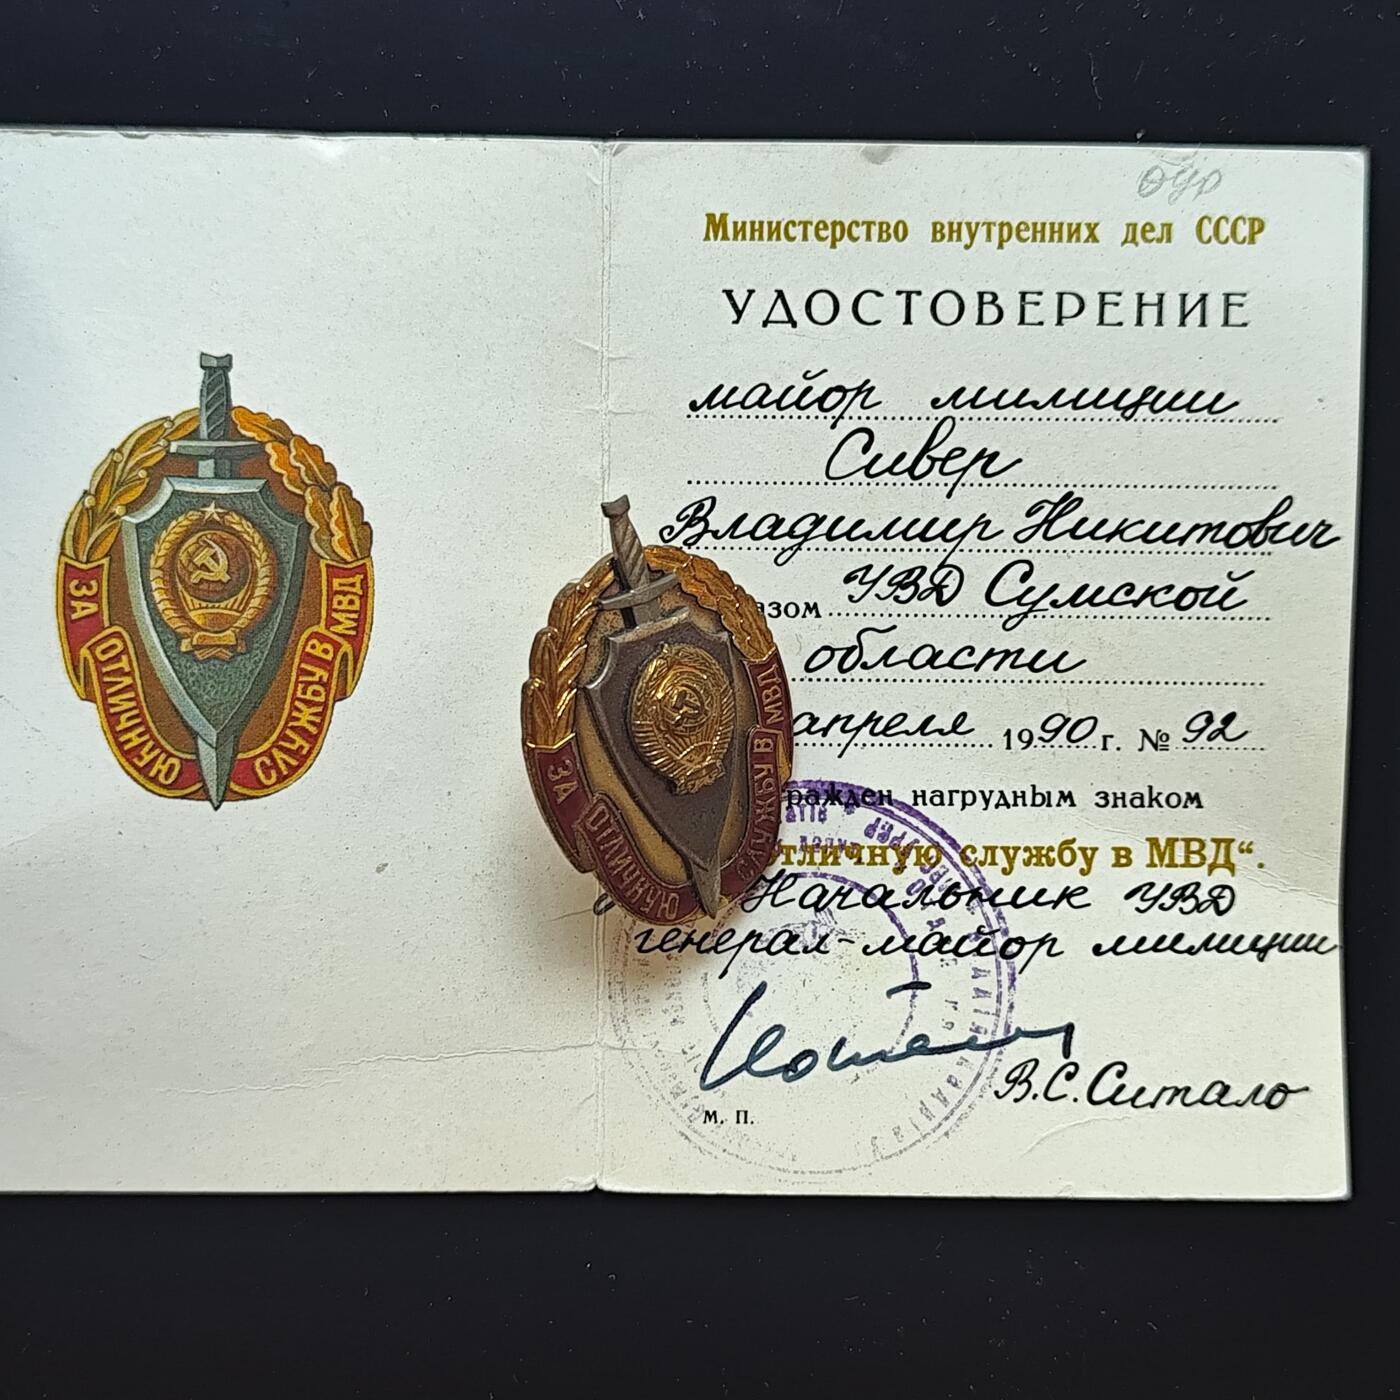 бур
Министерство внутренних дел СССР
УДОСТОВЕРЕНИЕ
майор милиции
Сивер
Владимир Никитович
азом УВД Сумской
области
апреля 1990 г. № 92
ражден нагрудным знаком
тличную службу в МВД“.
Начальник УВД
генерал-майор милиции
В.С. Ситало
М. П.
ЗА ОТЛИЧНУЮ СЛУЖБУ В МВД
ЗА ОТЛИЧНУЮ СЛУЖБУ В МВД